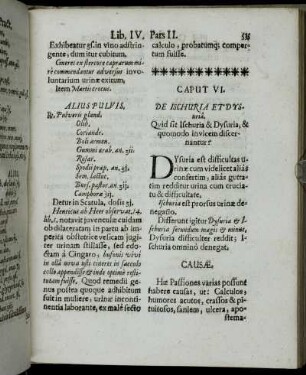 Lib. IV. Pars II.
Exhibeatur ɋʃin vitio adstrin-
gente, dum itur cubitum.
Cineres ex stercore caprarum mi-
re commendantur adversus invo-
luntarium urinæ exitum.
Item Martii croeus.
ALIUS PULVIS.
℞. Pulveris gland.
Olib.
Coriandr.
Boli armen.
Gummi arab. an. ʒij.
Rosar.
Spodii præp. an. ʒj.
Sem. lactuc.
Burs. pastor. an. ʒij.
Camphoræ ʒß.
Detur in Scatula, dosis ʒj.
Henricus ab Heer observat. 14.
lib. 1. notavit juvenile cuidam
ob dilaceratam in partu ab im-
perita obstetrice vesicam jugiter
urinam stillasse, sed edo-
ctam à Cingaro,
in olla nova usti cineres in sacculo
collo appendisse & inde optimè resti-
tutam fuisse. Quod remedii ge-
nus postea quoque adhibitum
fuit in muliere, urinæ inconti-
nentia laborante, ex malè secto
calculo, probatumq; comper-
tum fuisse.
CAPUT VI.
DE ISCHURIA ET DYS-
uriâ.
Quid sit Ischuria & Dysuria, &
quomodo invicem discer-
nantur?
Dysuria est difficultas u-
rinæ cum videlicet aliâ
consertim, aliàs gutta-
tim redditur urina cum crucia-
tu & difficultate.
Ischuria est prorsus urinæ de-
negatio.
Differunt igitur Dysuria & I-
schuria secundum magis & minus,
Dysuria difficulter reddit; I-
schuria omninò denegat.
CAUSÆ.
Hæ Passiones varias possunt
habere causas, ut: Calculos,
humores acutos, crassos & pi-
tuitosos, saniem, ulcera, apo-
stema-